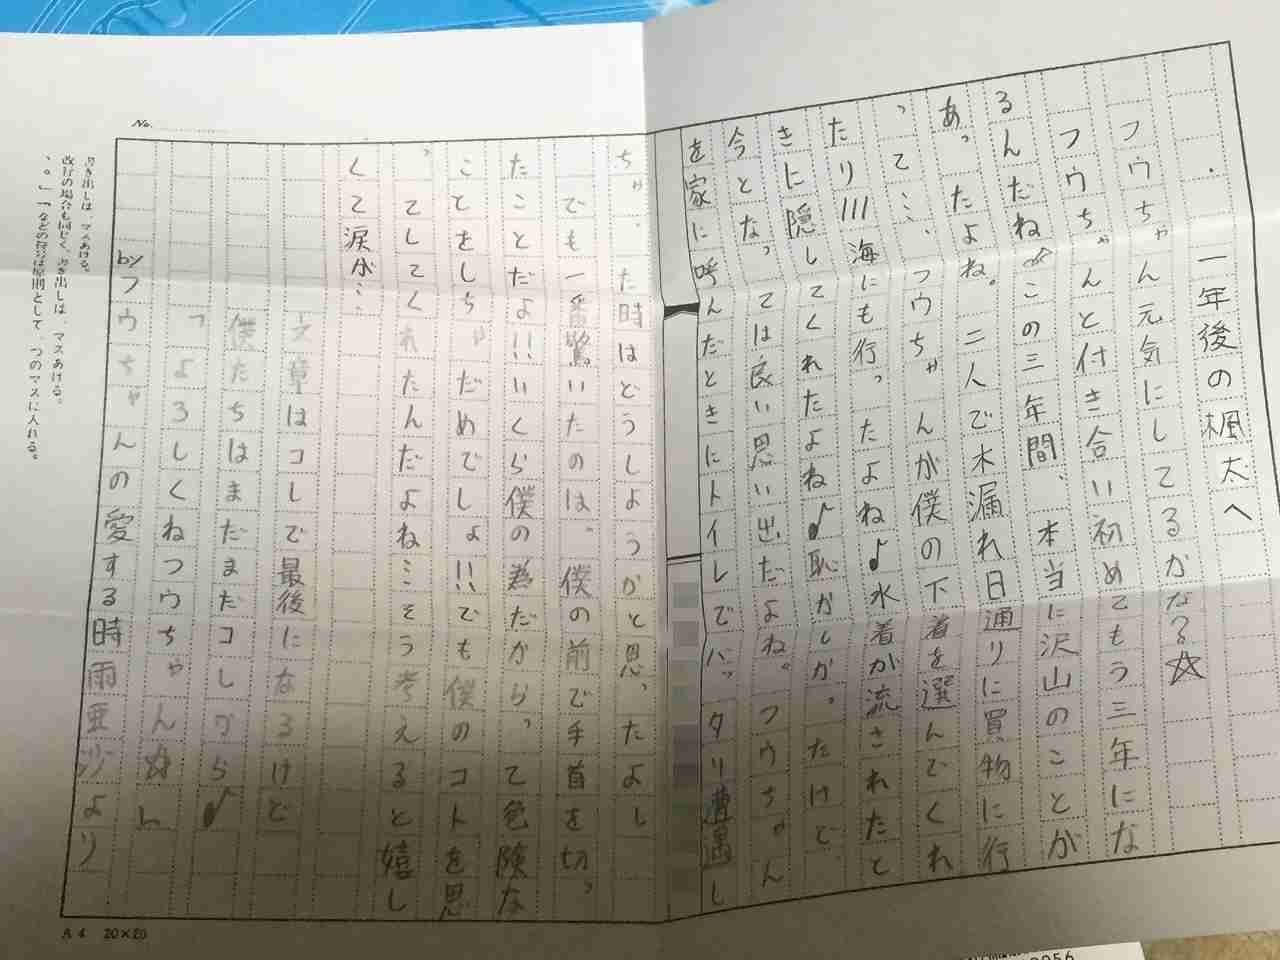 一年後の楓太へ
フウちゃん元気にしてるかな?☆
フウちゃんと付き合い初めてもう三年にな
るんだね♪この三年間、本当に沢山のことが
あったよね。二人で木漏れ日通りに買物に行
って…、フウちゃんが僕の下着を選んでくれ
たり///海にも行ったよね♪水着が流されたと
きに隠してくれたよね♪恥かしかったけど、
今となっては良い思い出だよね。フウちゃん
を家に呼んだときにトイレでバッタリ遭遇し
ちゃった時はどうしようかと思ったよ
でも一番驚いたのは、僕の前で手首を切っ
たことだよ!!いくら僕の為だからって危険な
ことをしちゃだめでしょ!!でも僕のコトを思
ってしてくれたんだよね…そう考えると嬉し
くて涙が…
文章はココで最後になるけど
僕たちはまだまだコレから♪
「よろしくねフウちゃん☆」
byフウちゃんの愛する時雨亜沙より
No.
書き出しは マスあける。
改行の場合も同じく、書き出しは マスあける。
、。」「などの符号は原則として、つのマスに入れる。
A4 20×20
0056